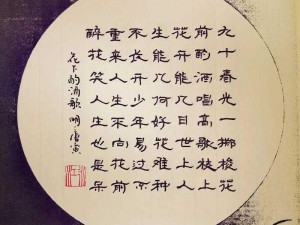 九十春光一掷梭花
前酌酒唱高歌枝上
花开能几日世上人
生能几何好花难种
不长开少年易过不
重来人生不向花前
醉花笑人生也是呆
花下酌酒歌 明 唐寅